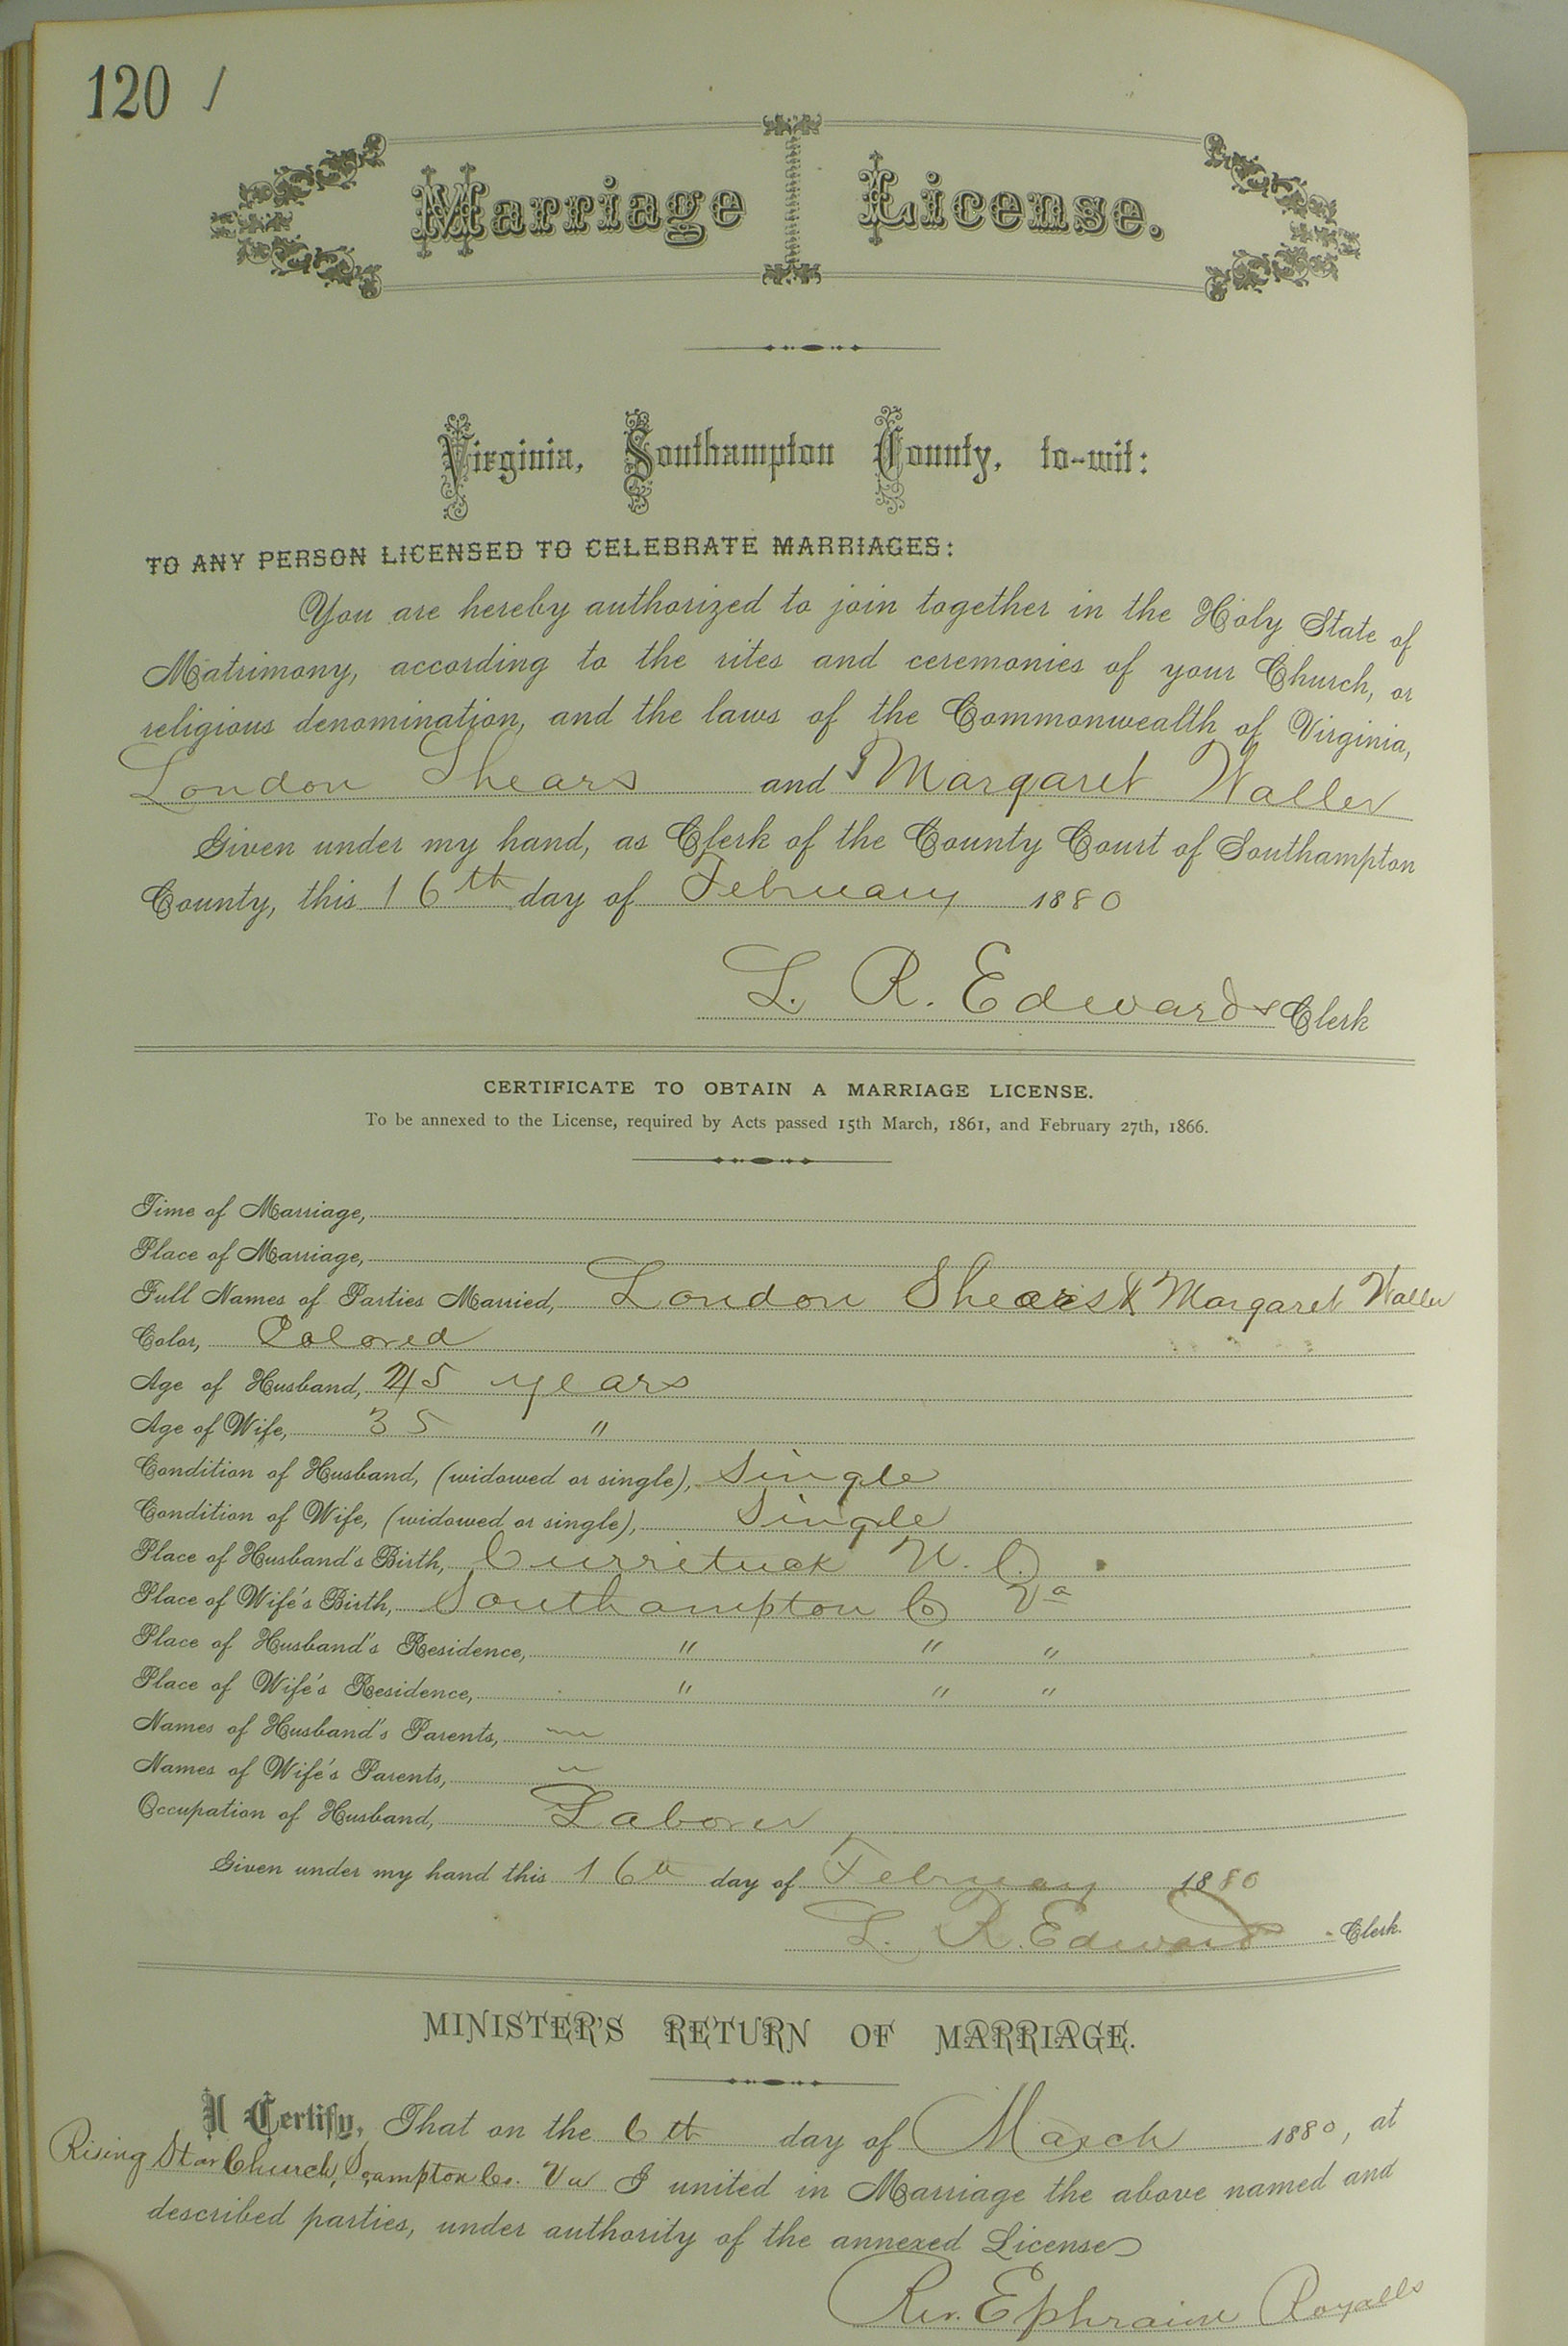 120 /
Marriage License.
Virginia, Southampton County, to-wit:
TO ANY PERSON LICENSED TO CELEBRATE MARRIAGES:
You are hereby authorized to join together in the Holy State of
Matrimony, according to the rites and ceremonies of your Church, or
religious denomination, and the laws of the Commonwealth of Virginia,
London Shears and Margaret Waller
Given under my hand, as Clerk of the County Court of Southampton
County, this 16th day of February 1880
L. R. Edwards Clerk
CERTIFICATE TO OBTAIN A MARRIAGE LICENSE.
To be annexed to the License, required by Acts passed 15th March, 1861, and February 27th, 1866.
Time of Marriage,
Place of Marriage,
Full Names of Parties Married, London Shears & Margaret Waller
Color, Colored
Age of Husband, 45 years
Age of Wife, 35 "
Condition of Husband, (widowed or single), Single
Condition of Wife, (widowed or single), Single
Place of Husband's Birth, Currituck N. C.
Place of Wife's Birth, Southampton Co Va
Place of Husband's Residence, " " "
Place of Wife's Residence, " " "
Names of Husband's Parents, —
Names of Wife's Parents, —
Occupation of Husband, Laborer
Given under my hand this 16th day of February 1880
L. R. Edwards Clerk.
MINISTER'S RETURN OF MARRIAGE.
I Certify, That on the 6th day of March 1880, at
Rising Star Church, Co. Va I united in Marriage the above named and
described parties, under authority of the annexed License
Rev. Ephraim Royalls